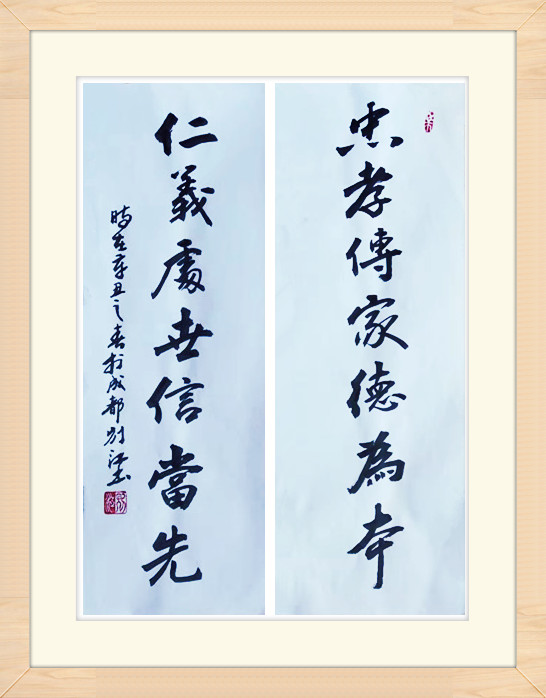 忠孝傳家德為本
仁義處世信當先
時在辛丑之春於成都別江書